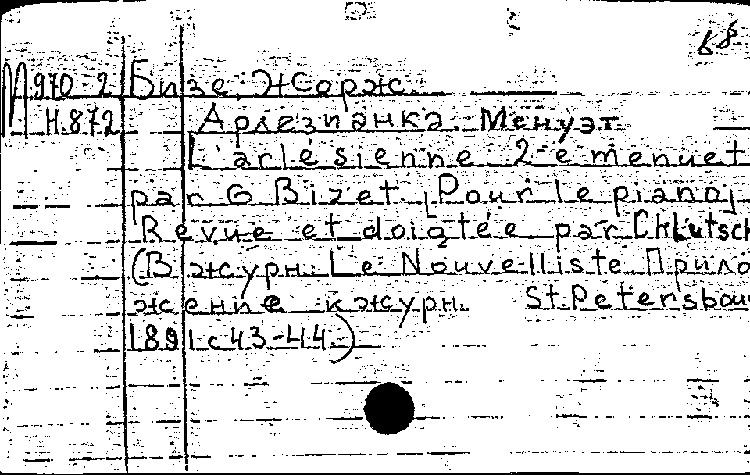 68
М 970-2 Бизе, Жорж.
Н.872 Арлезианка. Менуэт.
L'arlésienne 2-e menuet
par G Bizet. [Pour le piano]
Revue et doigtée par Ch Lutsch
(В журн. Le Nouvelliste Прило
жение к журн. St. Petersbou
1891 с 43-44)